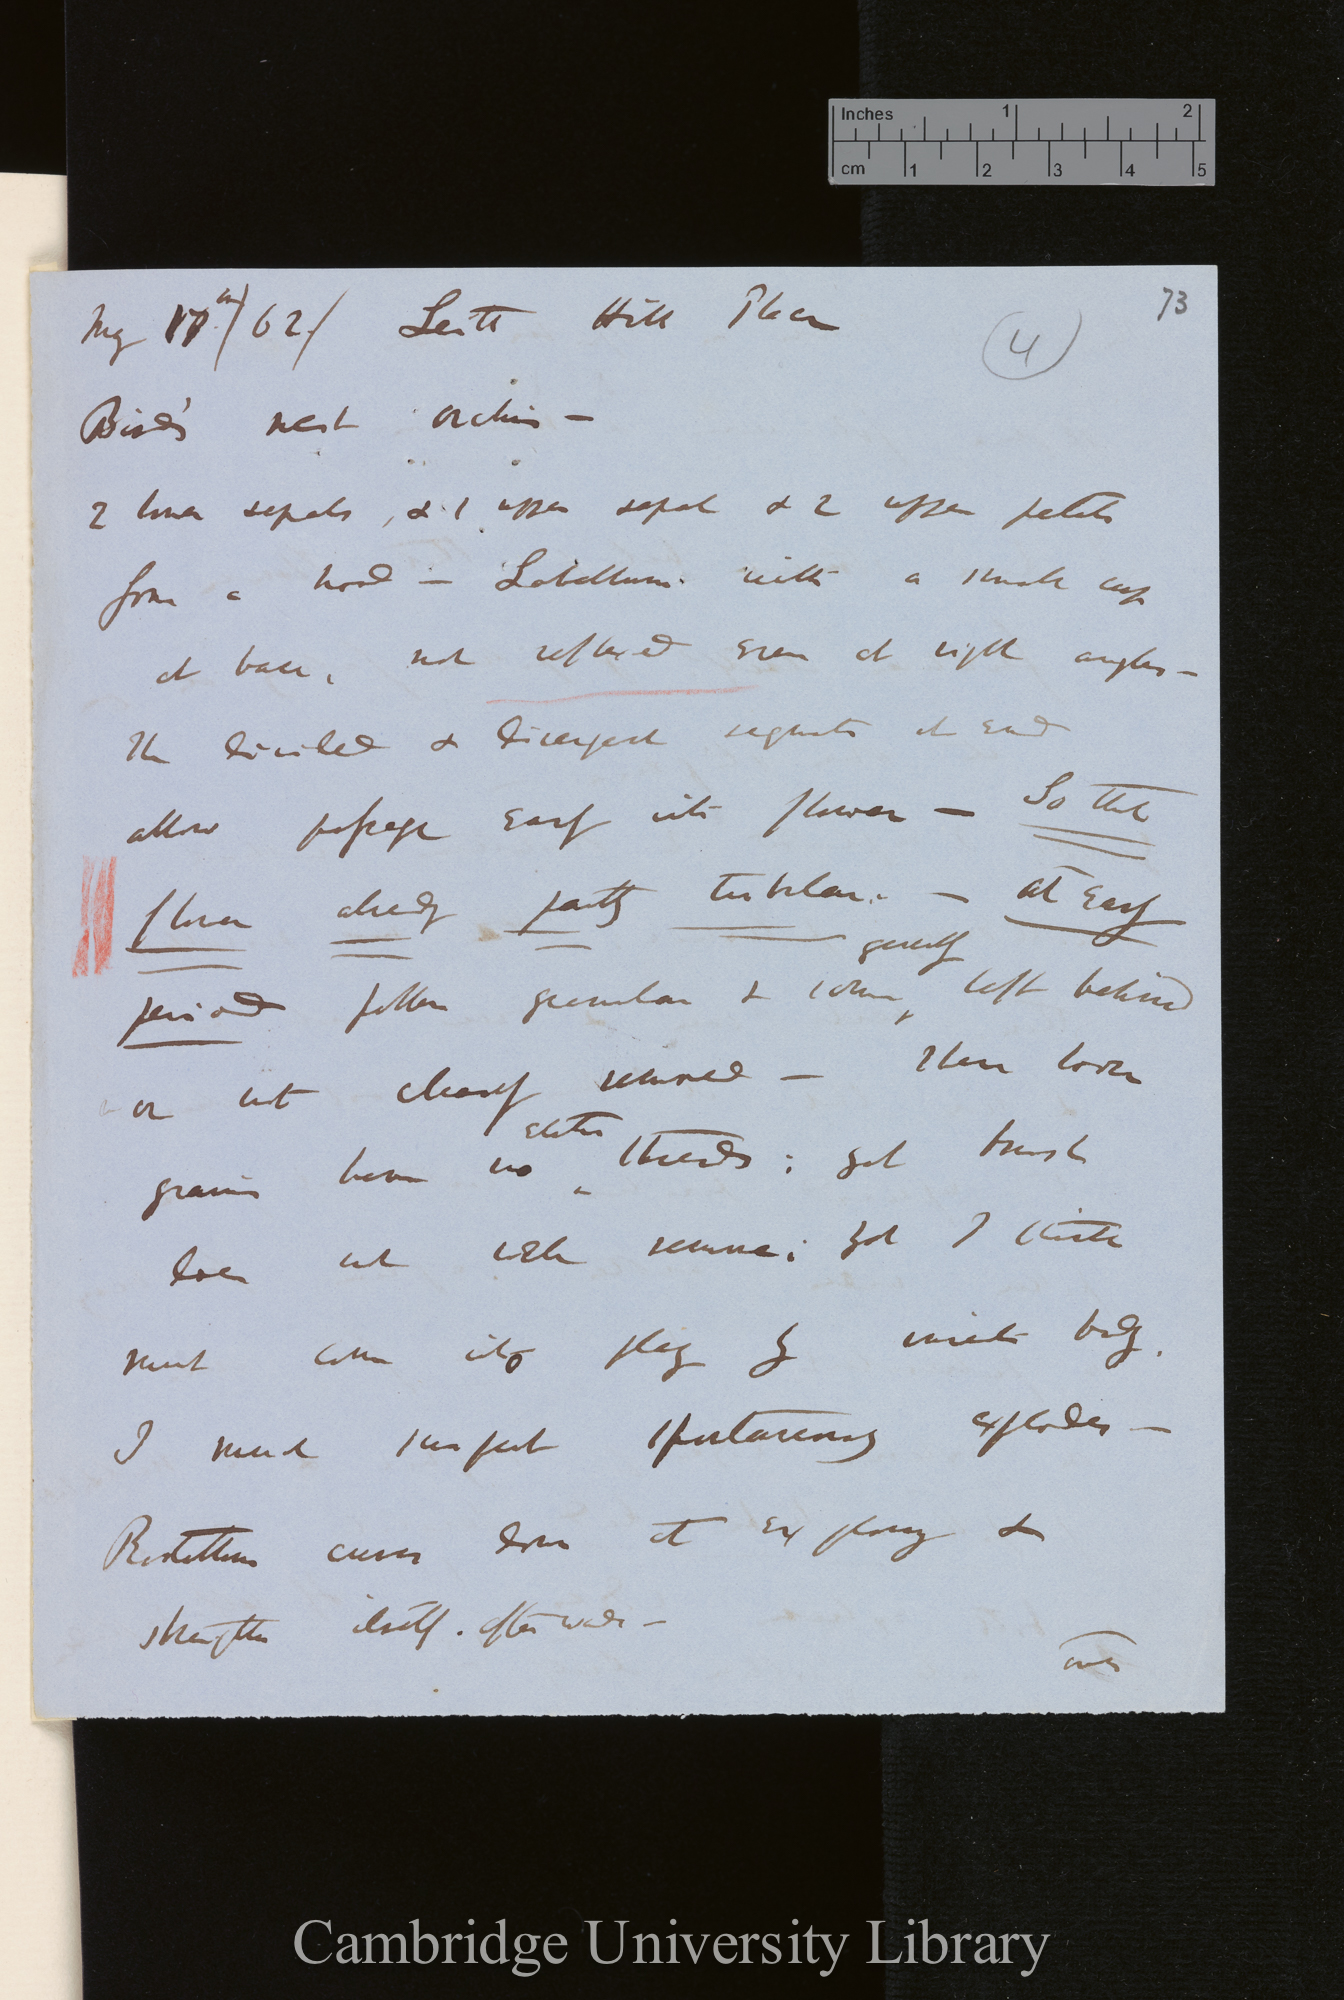 Inches 1 2
cm 1 2 3 4 5
73
May 17th/62/ Leith Hill Place
(4)
Bird's nest orchis —
2 lower sepals, & 1 upper sepal & 2 upper petals
form a hood — Labellum with a small cup
at base, not reflexed even at right angles —
The divided & divergent segments at end
allow passage easy into flower — So that
flower already partly tubular. — at early
generally
period pollen granular & some left behind
or not cleanly removed — These lower
elastic
grains have no threads; yet brush
does not well remove; yet I think
must come into play by insects body.
I much suspect spontaneously explodes —
Rostellum curves down at explosion &
straighten itself afterwards —
over
Cambridge University Library